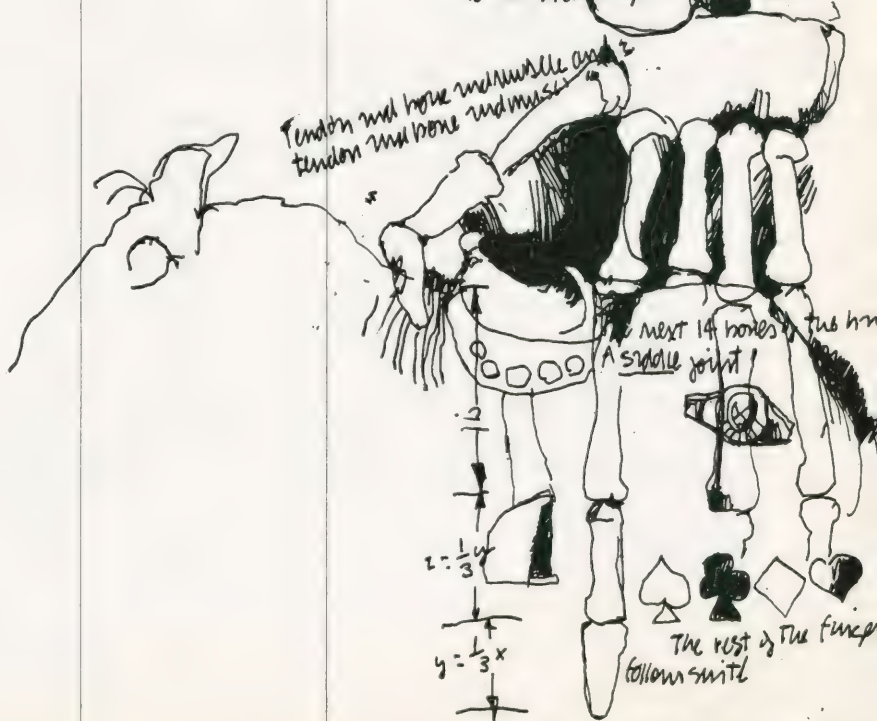 Tendon and bone and muscle and
tendon and bone and muscle
next 14 bones of the
A saddle joint
z = 1/3 y
y = 1/3 x
The rest of The
follow suit